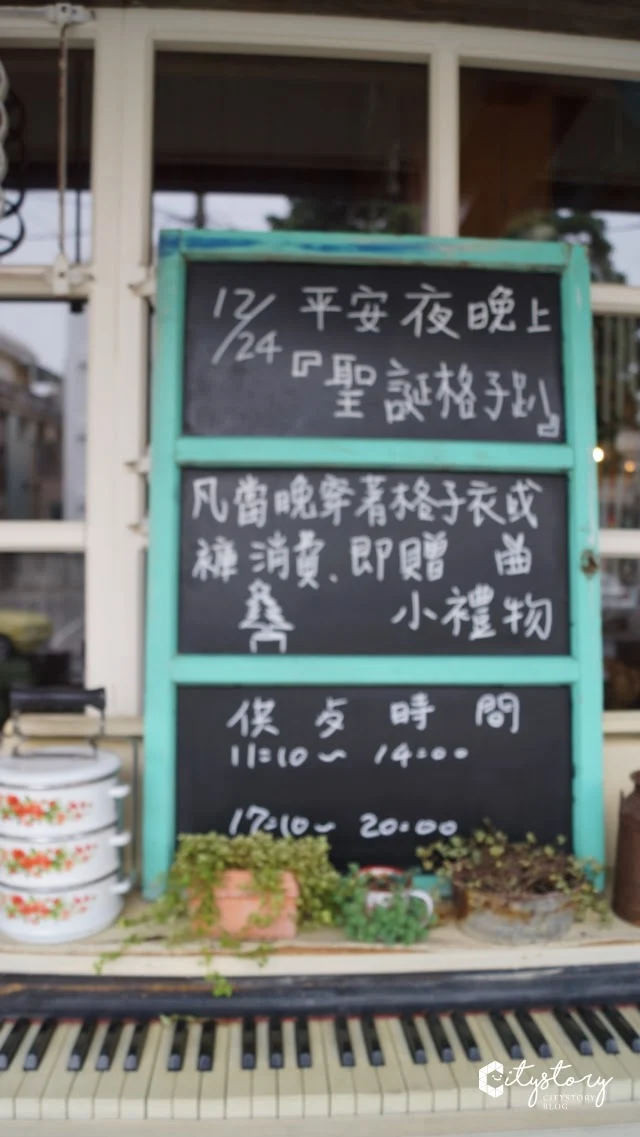 12/24 平安夜晚上
『聖誕格子趴』
凡當晚穿著格子衣或
褲消費、即贈
小禮物
供 時間
11:10~ 14:00
17:10~ 20:00
Citystory
CITYSTORY
BLOG